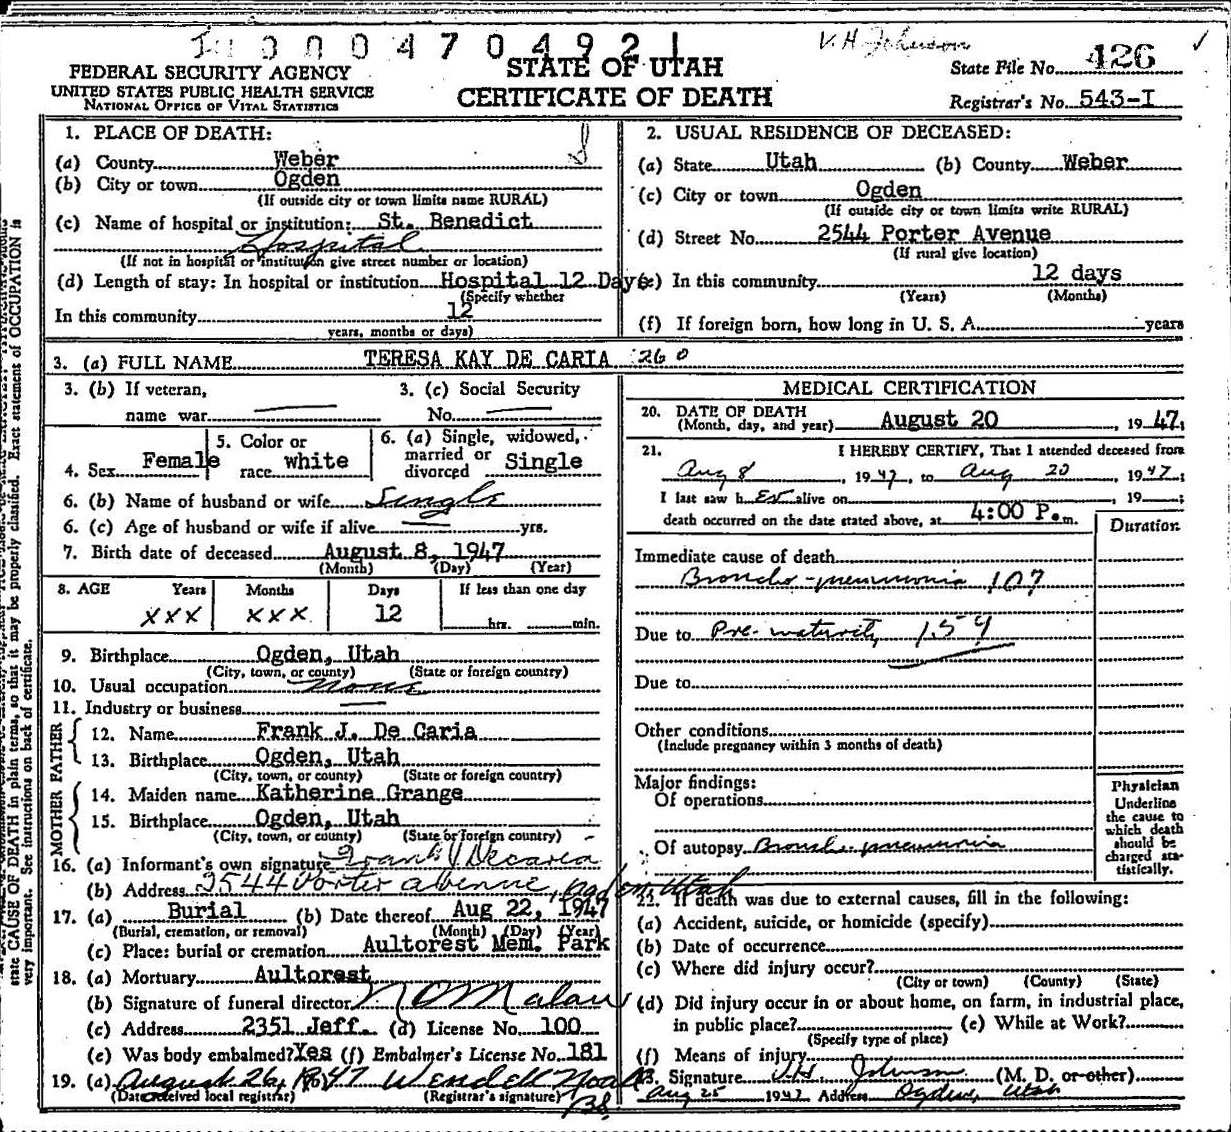 0 0 0 4 7 0 4 9 2 1
V. H. Johnson
State File No. 426
FEDERAL SECURITY AGENCY
UNITED STATES PUBLIC HEALTH SERVICE
NATIONAL OFFICE OF VITAL STATISTICS
STATE OF UTAH
CERTIFICATE OF DEATH
Registrar's No. 543-I
1. PLACE OF DEATH:
(a) County Weber
(b) City or town Ogden
(If outside city or town limits name RURAL)
(c) Name of hospital or institution: St. Benedict
Hospital
(If not in hospital or institution give street number or location)
(d) Length of stay: In hospital or institution Hospital 12 Days
(Specify whether
In this community 12
years, months or days)
2. USUAL RESIDENCE OF DECEASED:
(a) State Utah (b) County Weber
(c) City or town Ogden
(If outside city or town limits write RURAL)
(d) Street No. 2544 Porter Avenue
(If rural give location)
(e) In this community 12 days
(Years) (Months)
(f) If foreign born, how long in U. S. A. years
3. (a) FULL NAME TERESA KAY DE CARIA 260
3. (b) If veteran,
name war
3. (c) Social Security
No.
4. Sex Female
5. Color or
race white
6. (a) Single, widowed,
married or
divorced Single
6. (b) Name of husband or wife Single
6. (c) Age of husband or wife if alive yrs.
7. Birth date of deceased August 8, 1947
(Month) (Day) (Year)
8. AGE Years Months Days If less than one day
XXX XXX 12 hrs. min.
9. Birthplace Ogden, Utah
(City, town, or county) (State or foreign country)
10. Usual occupation none
11. Industry or business
FATHER
12. Name Frank J. De Caria
13. Birthplace Ogden, Utah
(City, town, or county) (State or foreign country)
MOTHER
14. Maiden name Katherine Grange
15. Birthplace Ogden, Utah
(City, town, or county) (State or foreign country)
16. (a) Informant's own signature Frank J Decaria
(b) Address 2544 Porter avenue, Ogden, Utah
17. (a) Burial (b) Date thereof Aug 22, 1947
(Burial, cremation, or removal) (Month) (Day) (Year)
(c) Place: burial or cremation Aultorest Mem. Park
18. (a) Mortuary Aultorest
(b) Signature of funeral director Malan
(c) Address 2351 Jeff. (d) License No. 100
(e) Was body embalmed? Yes (f) Embalmer's License No. 181
19. (a) August 26, 1947 Wendell
(Date received local registrar) (Registrar's signature)
MEDICAL CERTIFICATION
20. DATE OF DEATH
(Month, day, and year) August 20, 1947;
21. I HEREBY CERTIFY, That I attended deceased from
Aug 8, 1947, to Aug 20 1947;
I last saw h er alive on , 19 ;
death occurred on the date stated above, at 4:00 P.m.
Duration
Immediate cause of death
Broncho-pneumonia 107
Due to Pre-maturity 159
Due to
Other conditions
(Include pregnancy within 3 months of death)
Major findings:
Of operations
Of autopsy Broncho-pneumonia
Physician
Underline
the cause to
which death
should be
charged sta-
tistically.
22. If death was due to external causes, fill in the following:
(a) Accident, suicide, or homicide (specify)
(b) Date of occurrence
(c) Where did injury occur?
(City or town) (County) (State)
(d) Did injury occur in or about home, on farm, in industrial place,
in public place? (e) While at Work?
(Specify type of place)
(f) Means of injury
23. Signature V.H. Johnson (M. D. or other)
Aug 25 1947 Address Ogden, Utah
state CAUSE OF DEATH in plain terms, so that it may be properly classified. Exact statement of OCCUPATION is
very important. See instructions on back of certificate.